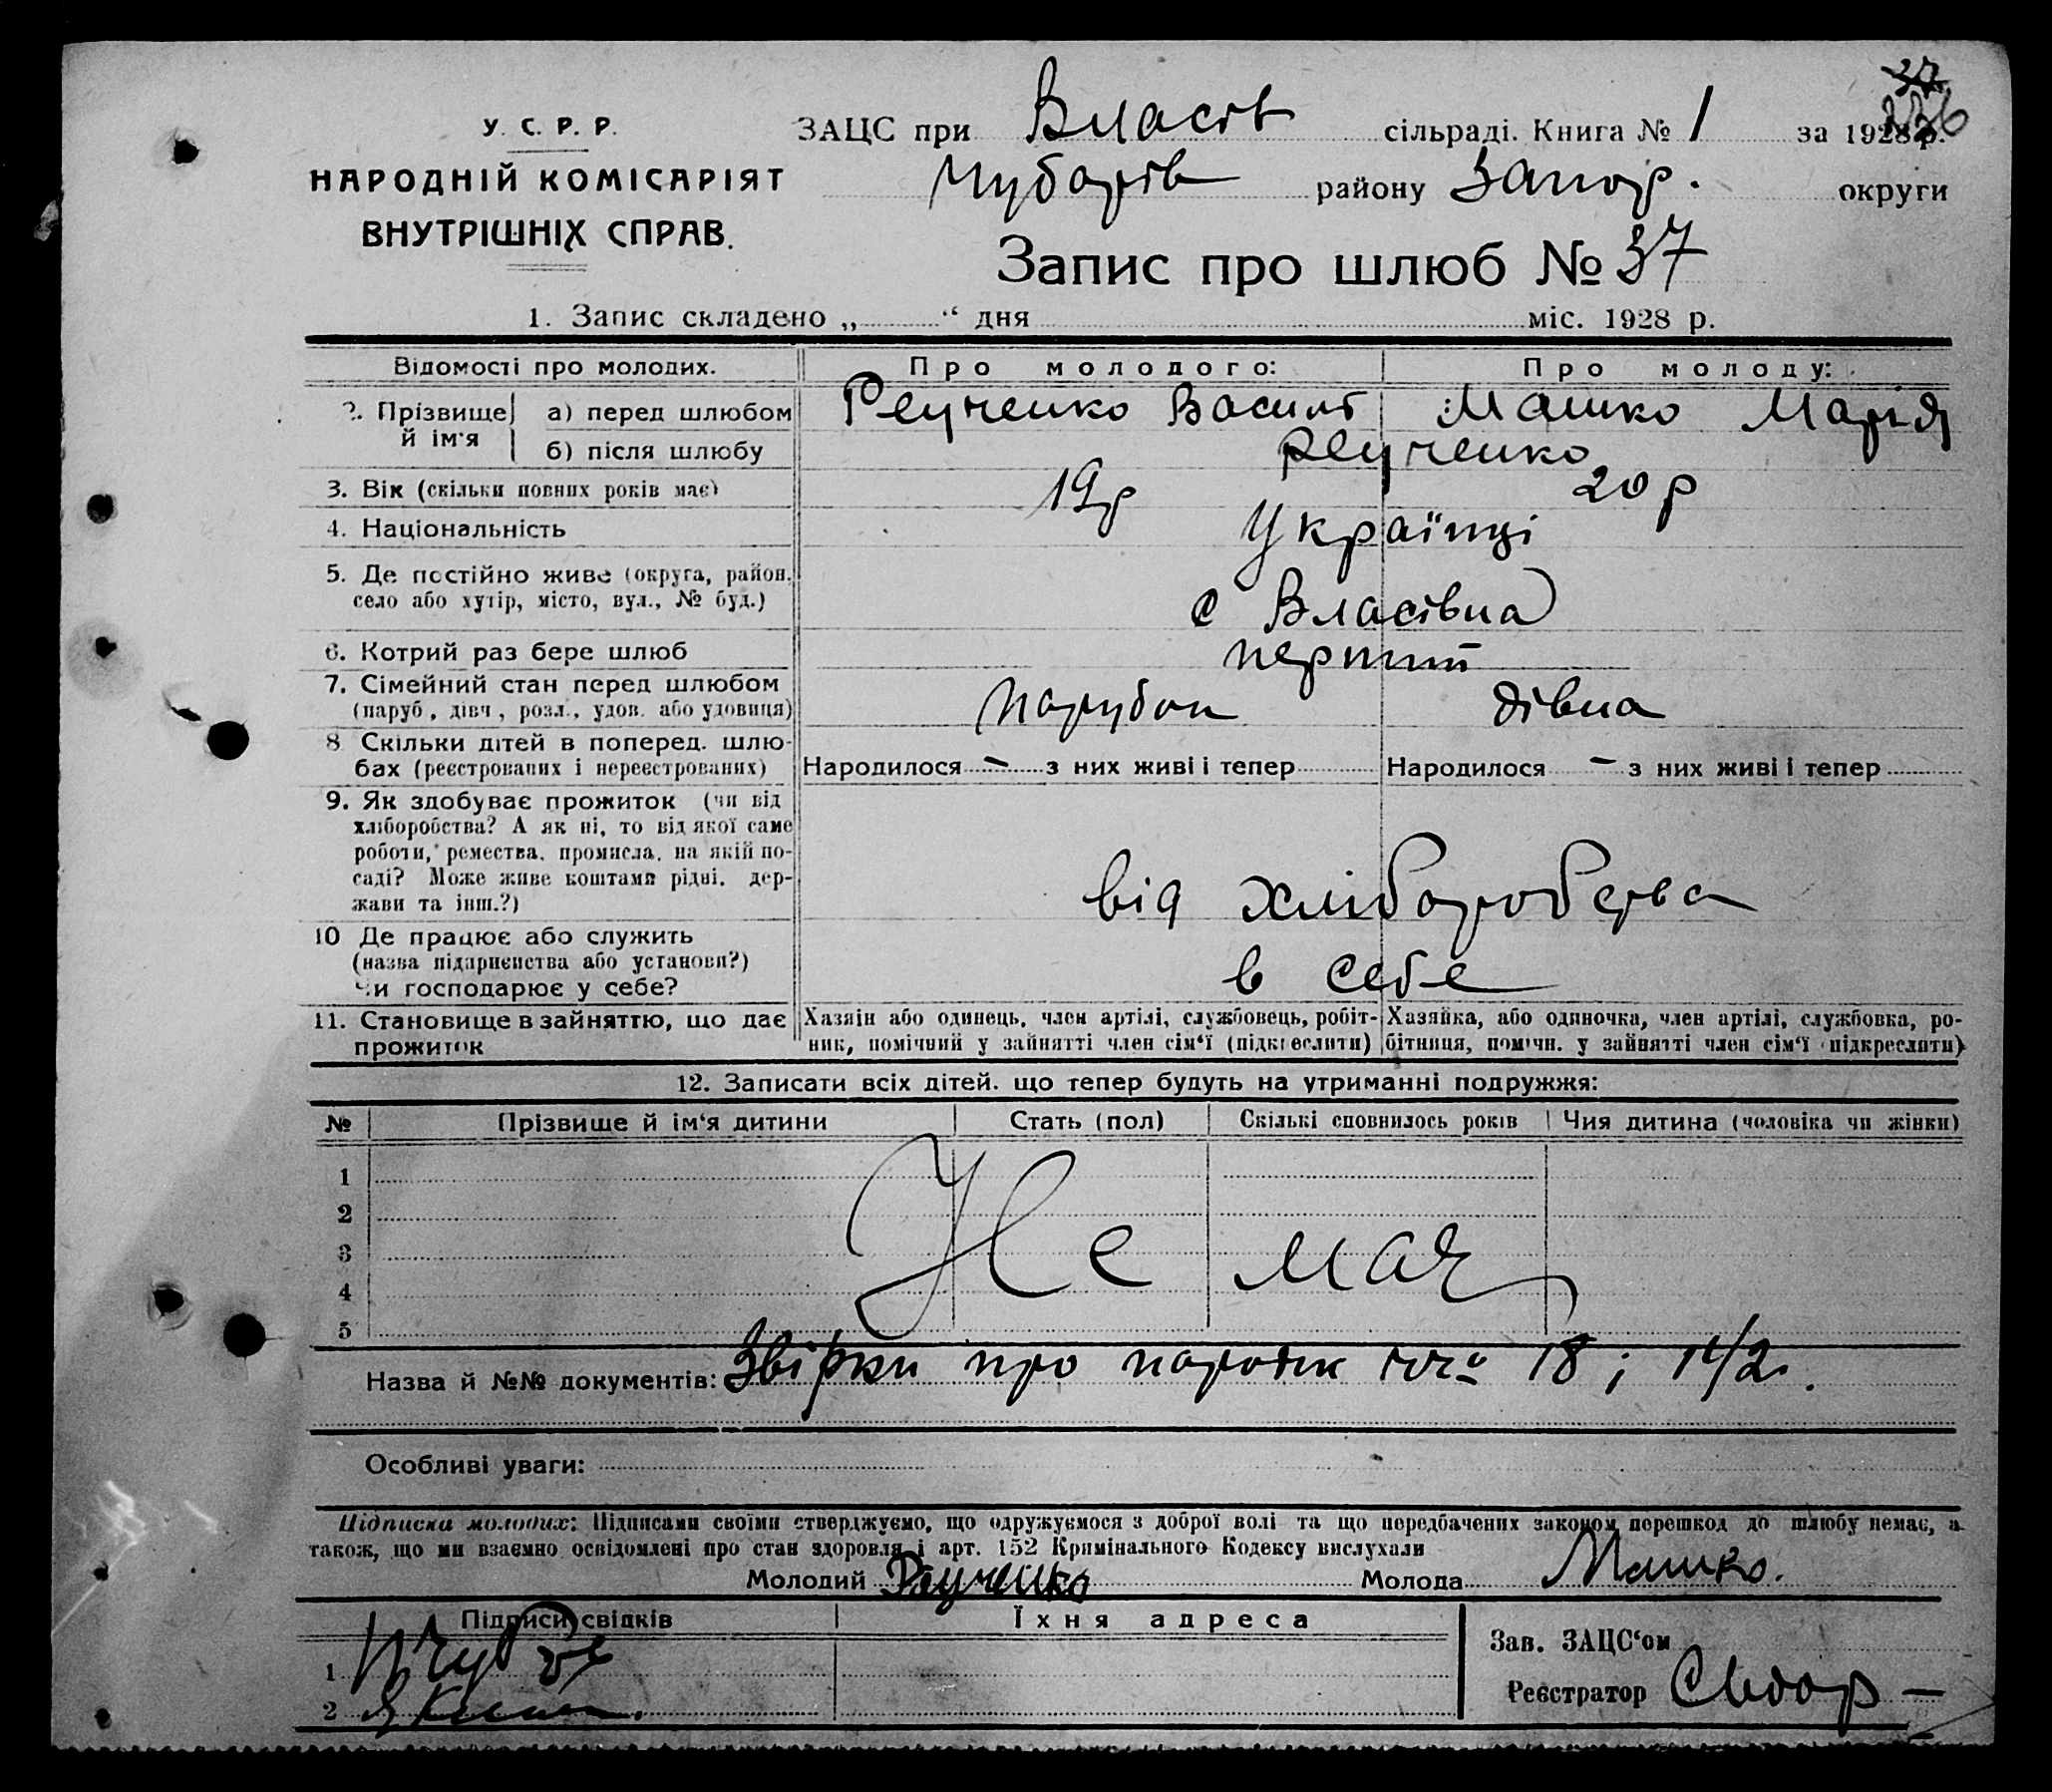 У. С. Р. Р.
НАРОДНІЙ КОМІСАРІЯТ
ВНУТРІШНІХ СПРАВ.
37
ЗАЦС при Власів сільраді. Книга № 1 за 1928 р.
Чубарів району Запор. округи
Запис про шлюб № 37
1. Запис складено „ “ дня міс. 1928 р.
Відомості про молодих. Про молодого: Про молоду:
2. Прізвище й ім'я а) перед шлюбом Реученко Василь Машко Марія
б) після шлюбу Реученко
3. Вік (скільки повних років має) 19р 20р
4. Національність Українці
5. Де постійно живе (округа, район, село або хутір, місто, вул., № буд.) с Власівка
6. Котрий раз бере шлюб перший
7. Сімейний стан перед шлюбом (паруб, дівч, розл., удов. або удовиця) Парубок дівка
8 Скільки дітей в поперед. шлюбах (реєстрованих і нереєстрованих) Народилося — з них живі і тепер Народилося — з них живі і тепер
9. Як здобуває прожиток (чи від
хліборобства? А як ні, то від якої саме
роботи, ремества, промисла, на якій по-
саді? Може живе коштами рідні, дер-
жави та інш.?) від хліборобства
10 Де працює або служить
(назва підприємства або установи?)
Чи господарює у себе? в себе
11. Становище в зайняттю, що дає прожиток
Хазяін або одинець, член артілі, службовець, робіт-
ник, помічний у зайнятті член сім‘ї (підкреслити)
Хазяйка, або одиночка, член артілі, службовка, ро-
бітниця, помічн. у зайнятті член сім‘ї (підкреслити)
12. Записати всіх дітей, що тепер будуть на утриманні подружжя:
№ Прізвище й ім‘я дитини Стать (пол) Скількі сповнилось років Чия дитина (чоловіка чи жінки)
1
2
3
4
5
Не має
Назва й №№ документів: про 18 і 14/2.
Особливі уваги:
Підписка молодих: Підписами своїми стверджуємо, що одружуємося з доброї волі та що передбачених законом перешкод до шлюбу немає, а
також, що ми взаємно освідомлені про стан здоровля і арт. 152 Кримінального Кодексу вислухали
Молодий Реученко Молода Машко.
Підписи свідків Їхня адреса
1
2
Зав. ЗАЦС‘ом
Реєстратор